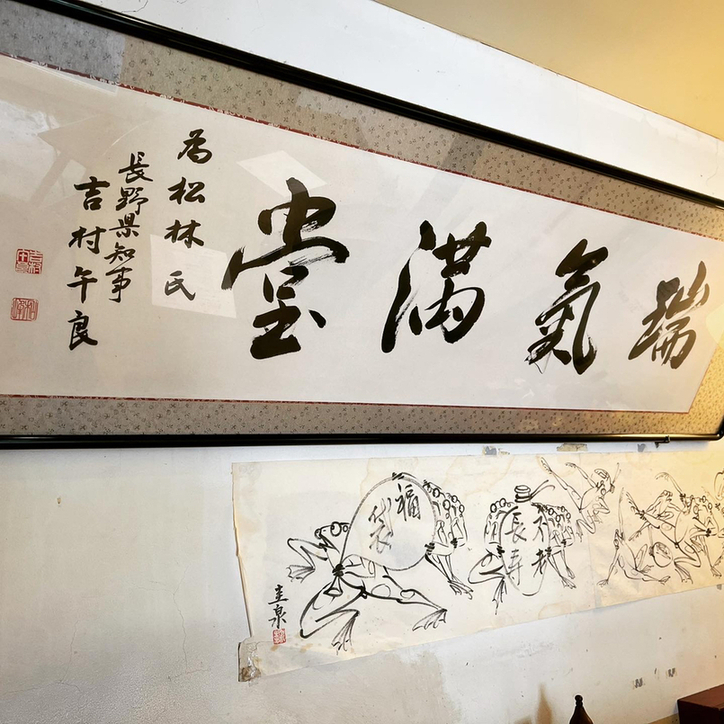 瑞氣滿堂
為松林氏
長野県知事
吉村午良
不老
長寿
福袋
圭泉